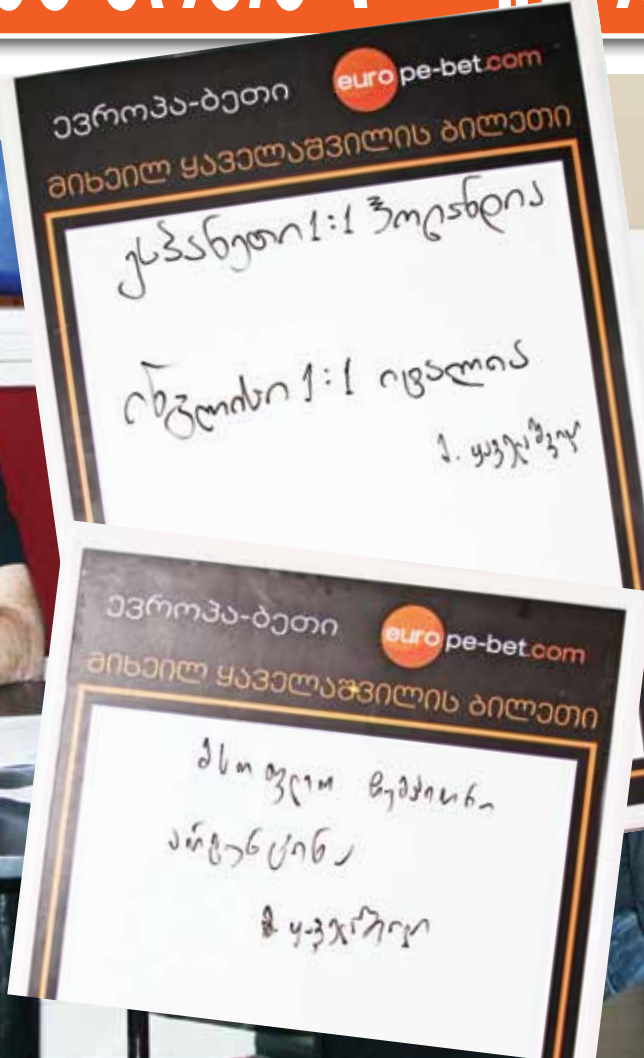 ევროპა-ბეთი europe-bet.com
მიხეილ ყაველაშვილის ბილეთი
ესპანეთი 1:1 ჰოლანდია
ინგლისი 1:1 იტალია
მ. ყაველაშვილი
ევროპა-ბეთი europe-bet.com
მიხეილ ყაველაშვილის ბილეთი
მსოფლიო ჩემპიონი
არგენტინა
მ ყაველაშვილი